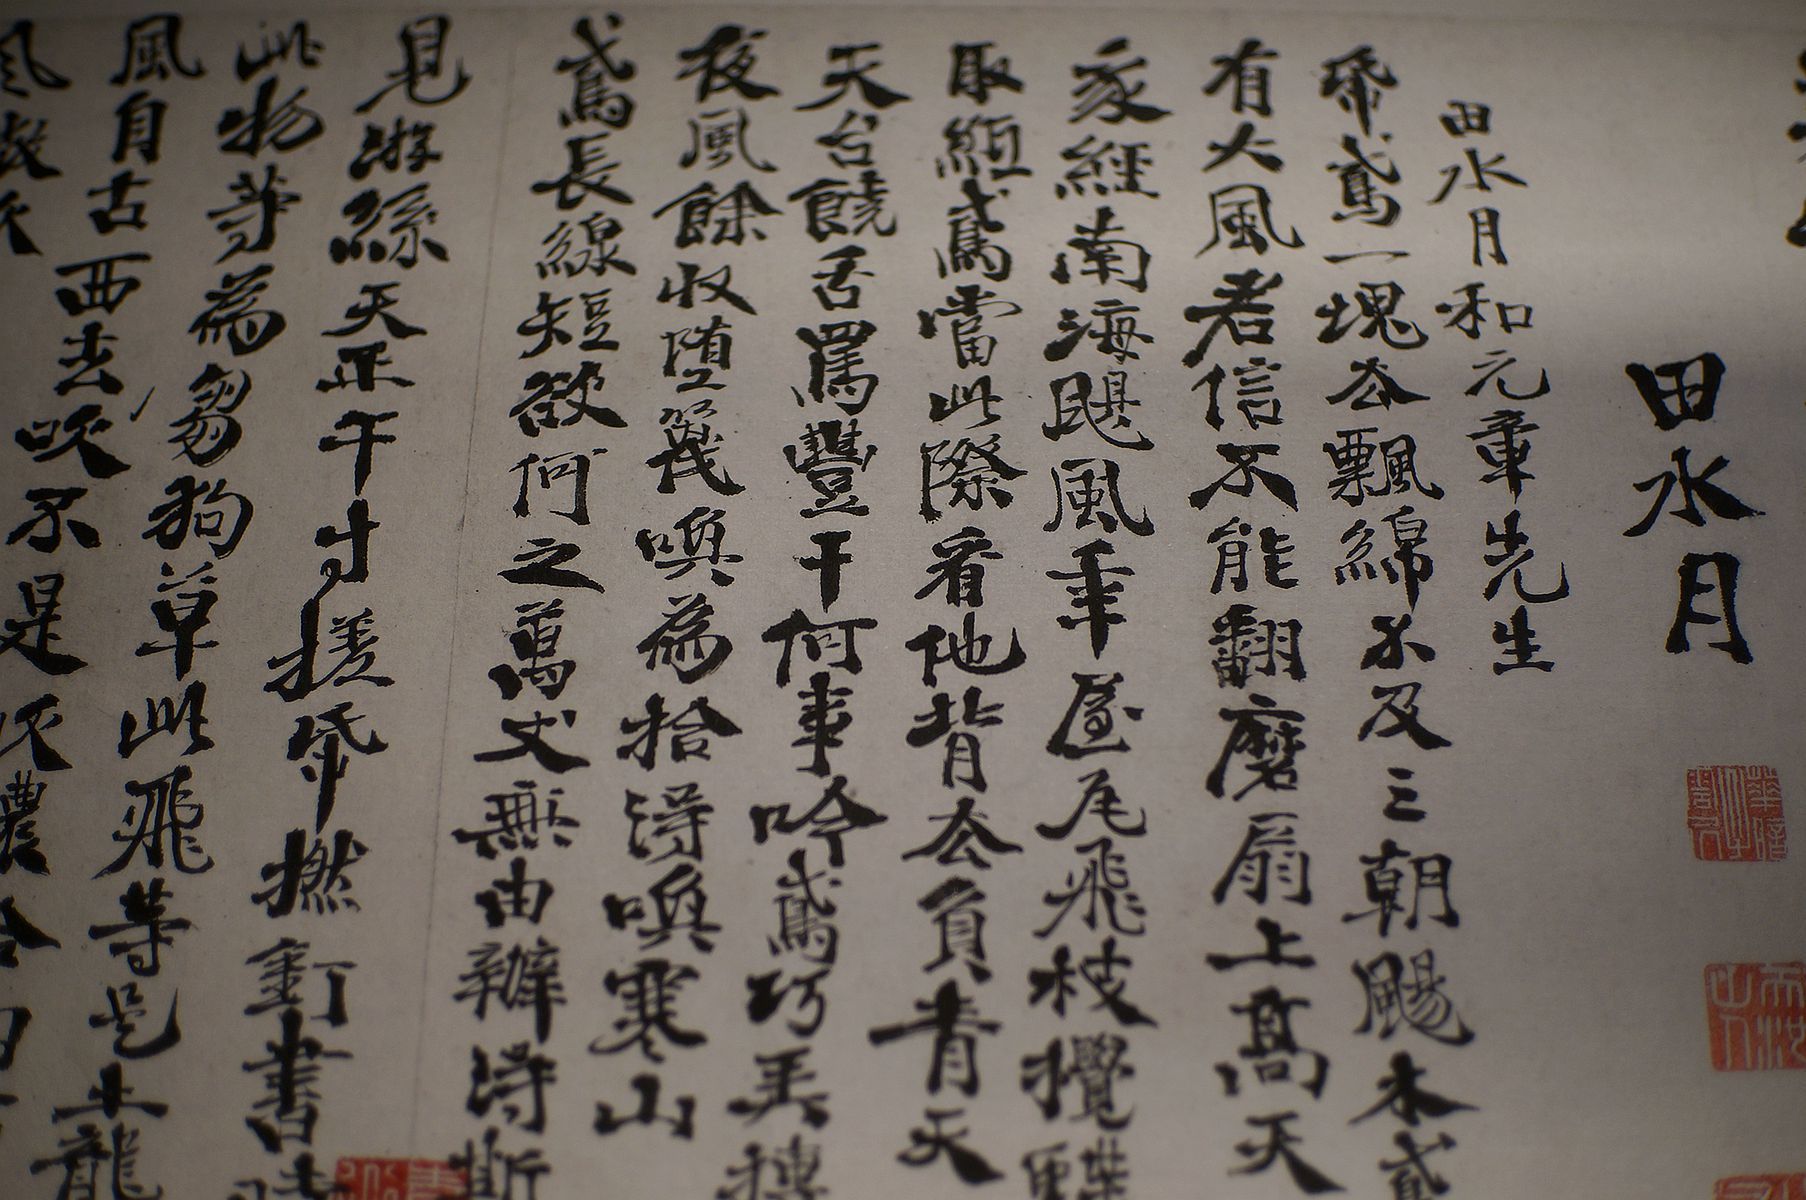 田水月
田水月和元章先生
紙鳶一塊去飄綿不及三朝颺木鳶
有大風者信不能翻磨扇上高天
家經南海颶風年屋尾飛枝攪
取緪鳶當此際看他背去負青天
天台饒舌罵豐干何事吟鳶巧弄摶
夜風餘收墮幾喚為拾得喚寒山
鳶長線短欲何之萬丈無由辦得斷
見游絲天正午寸搓紙撚釘書
此物等為芻狗草此飛等是土龍
風自古西去吹不是